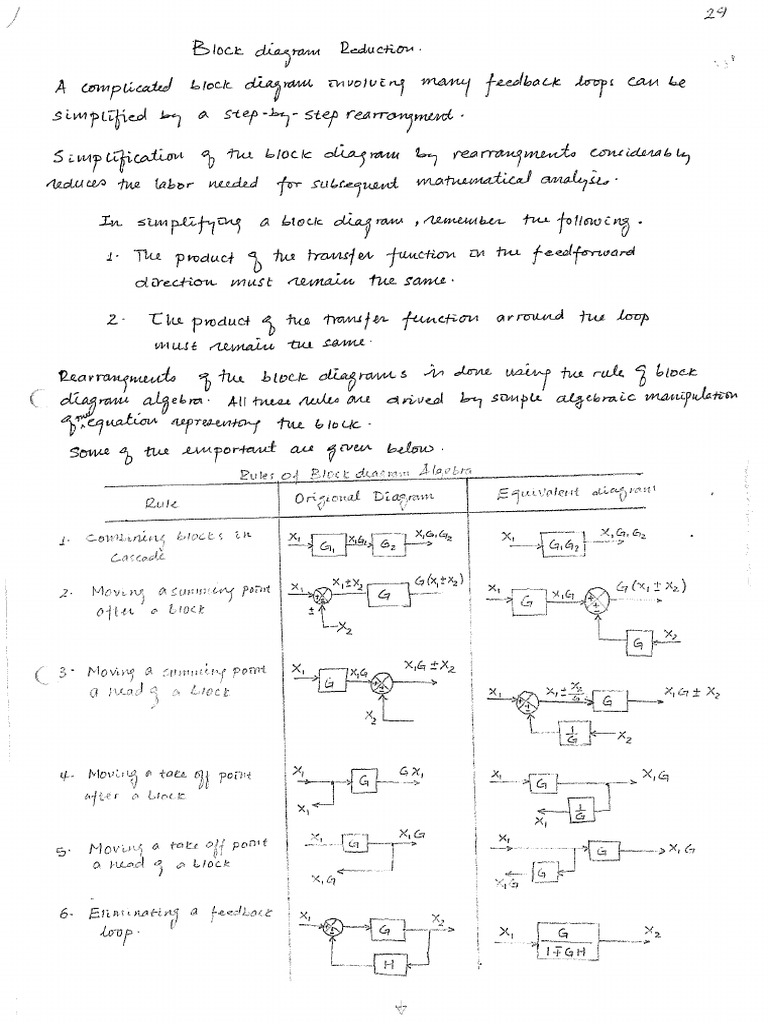 29
Block diagram Reduction.
A complicated block diagram involving many feedback loops can be
simplified by a step-by-step rearrangment.
Simplification of the block diagram by rearrangments considerably
reduces the labor needed for subsequent mathematical analysis.
In simplifying a block diagram, remember the following.
1. The product of the transfer function in the feedforward
direction must remain the same.
2. The product of the transfer function arround the loop
must remain the same.
Rearrangments of the block diagrams is done using the rule of block
diagram algebra. All these rules are drived by simple algebraic manipulation
of the equation representing the block.
Some of the important are given below.
Rules of Block diagram Algebra
Rule Origional Diagram Equivalent diagram
1. Combining blocks in
cascade
X₁ G₁ X₁G₁ G₂ X₁G₁G₂
X₁ G₁G₂ X₁G₁G₂
2. Moving a summing point
after a block
X₁ + ± X₁±X₂ G G(X₁±X₂)
X₂
X₁ G X₁G + ± G(X₁±X₂)
G X₂
3. Moving a summing point
a head of a block
X₁ G X₁G + ± X₁G±X₂
X₂
X₁ + ± X₁±X₂/G G X₁G±X₂
1/G X₂
4. Moving a take off point
after a block
X₁ G GX₁
X₁
X₁ G X₁G
X₁ 1/G
5. Moving a take off point
a head of a block
X₁ G X₁G
X₁G
X₁ G X₁G
X₁G G
6. Eliminating a feedback
loop.
X₁ G X₂
H
X₁ G/(1∓GH) X₂